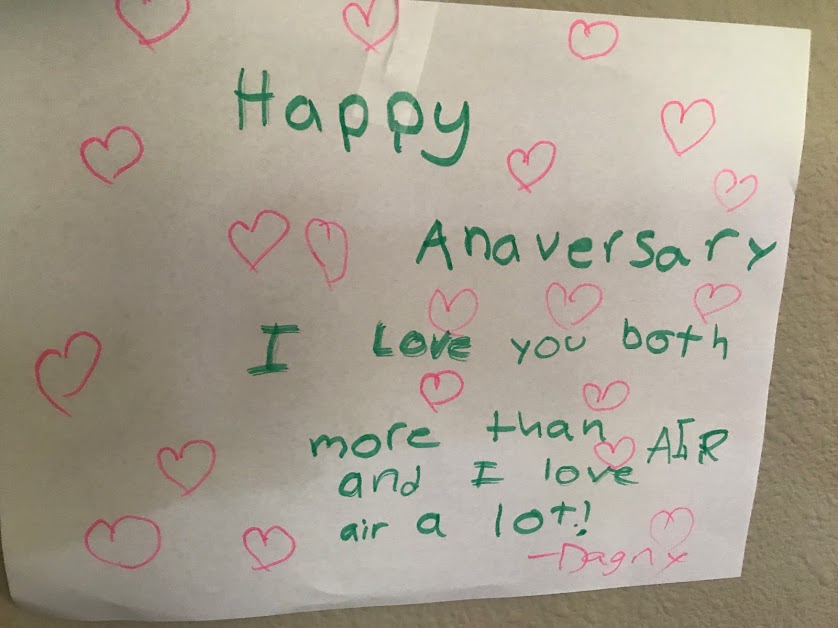 Happy
Anaversary
I Love you both
more than AIR
and I love
air a lot!
-Dagny